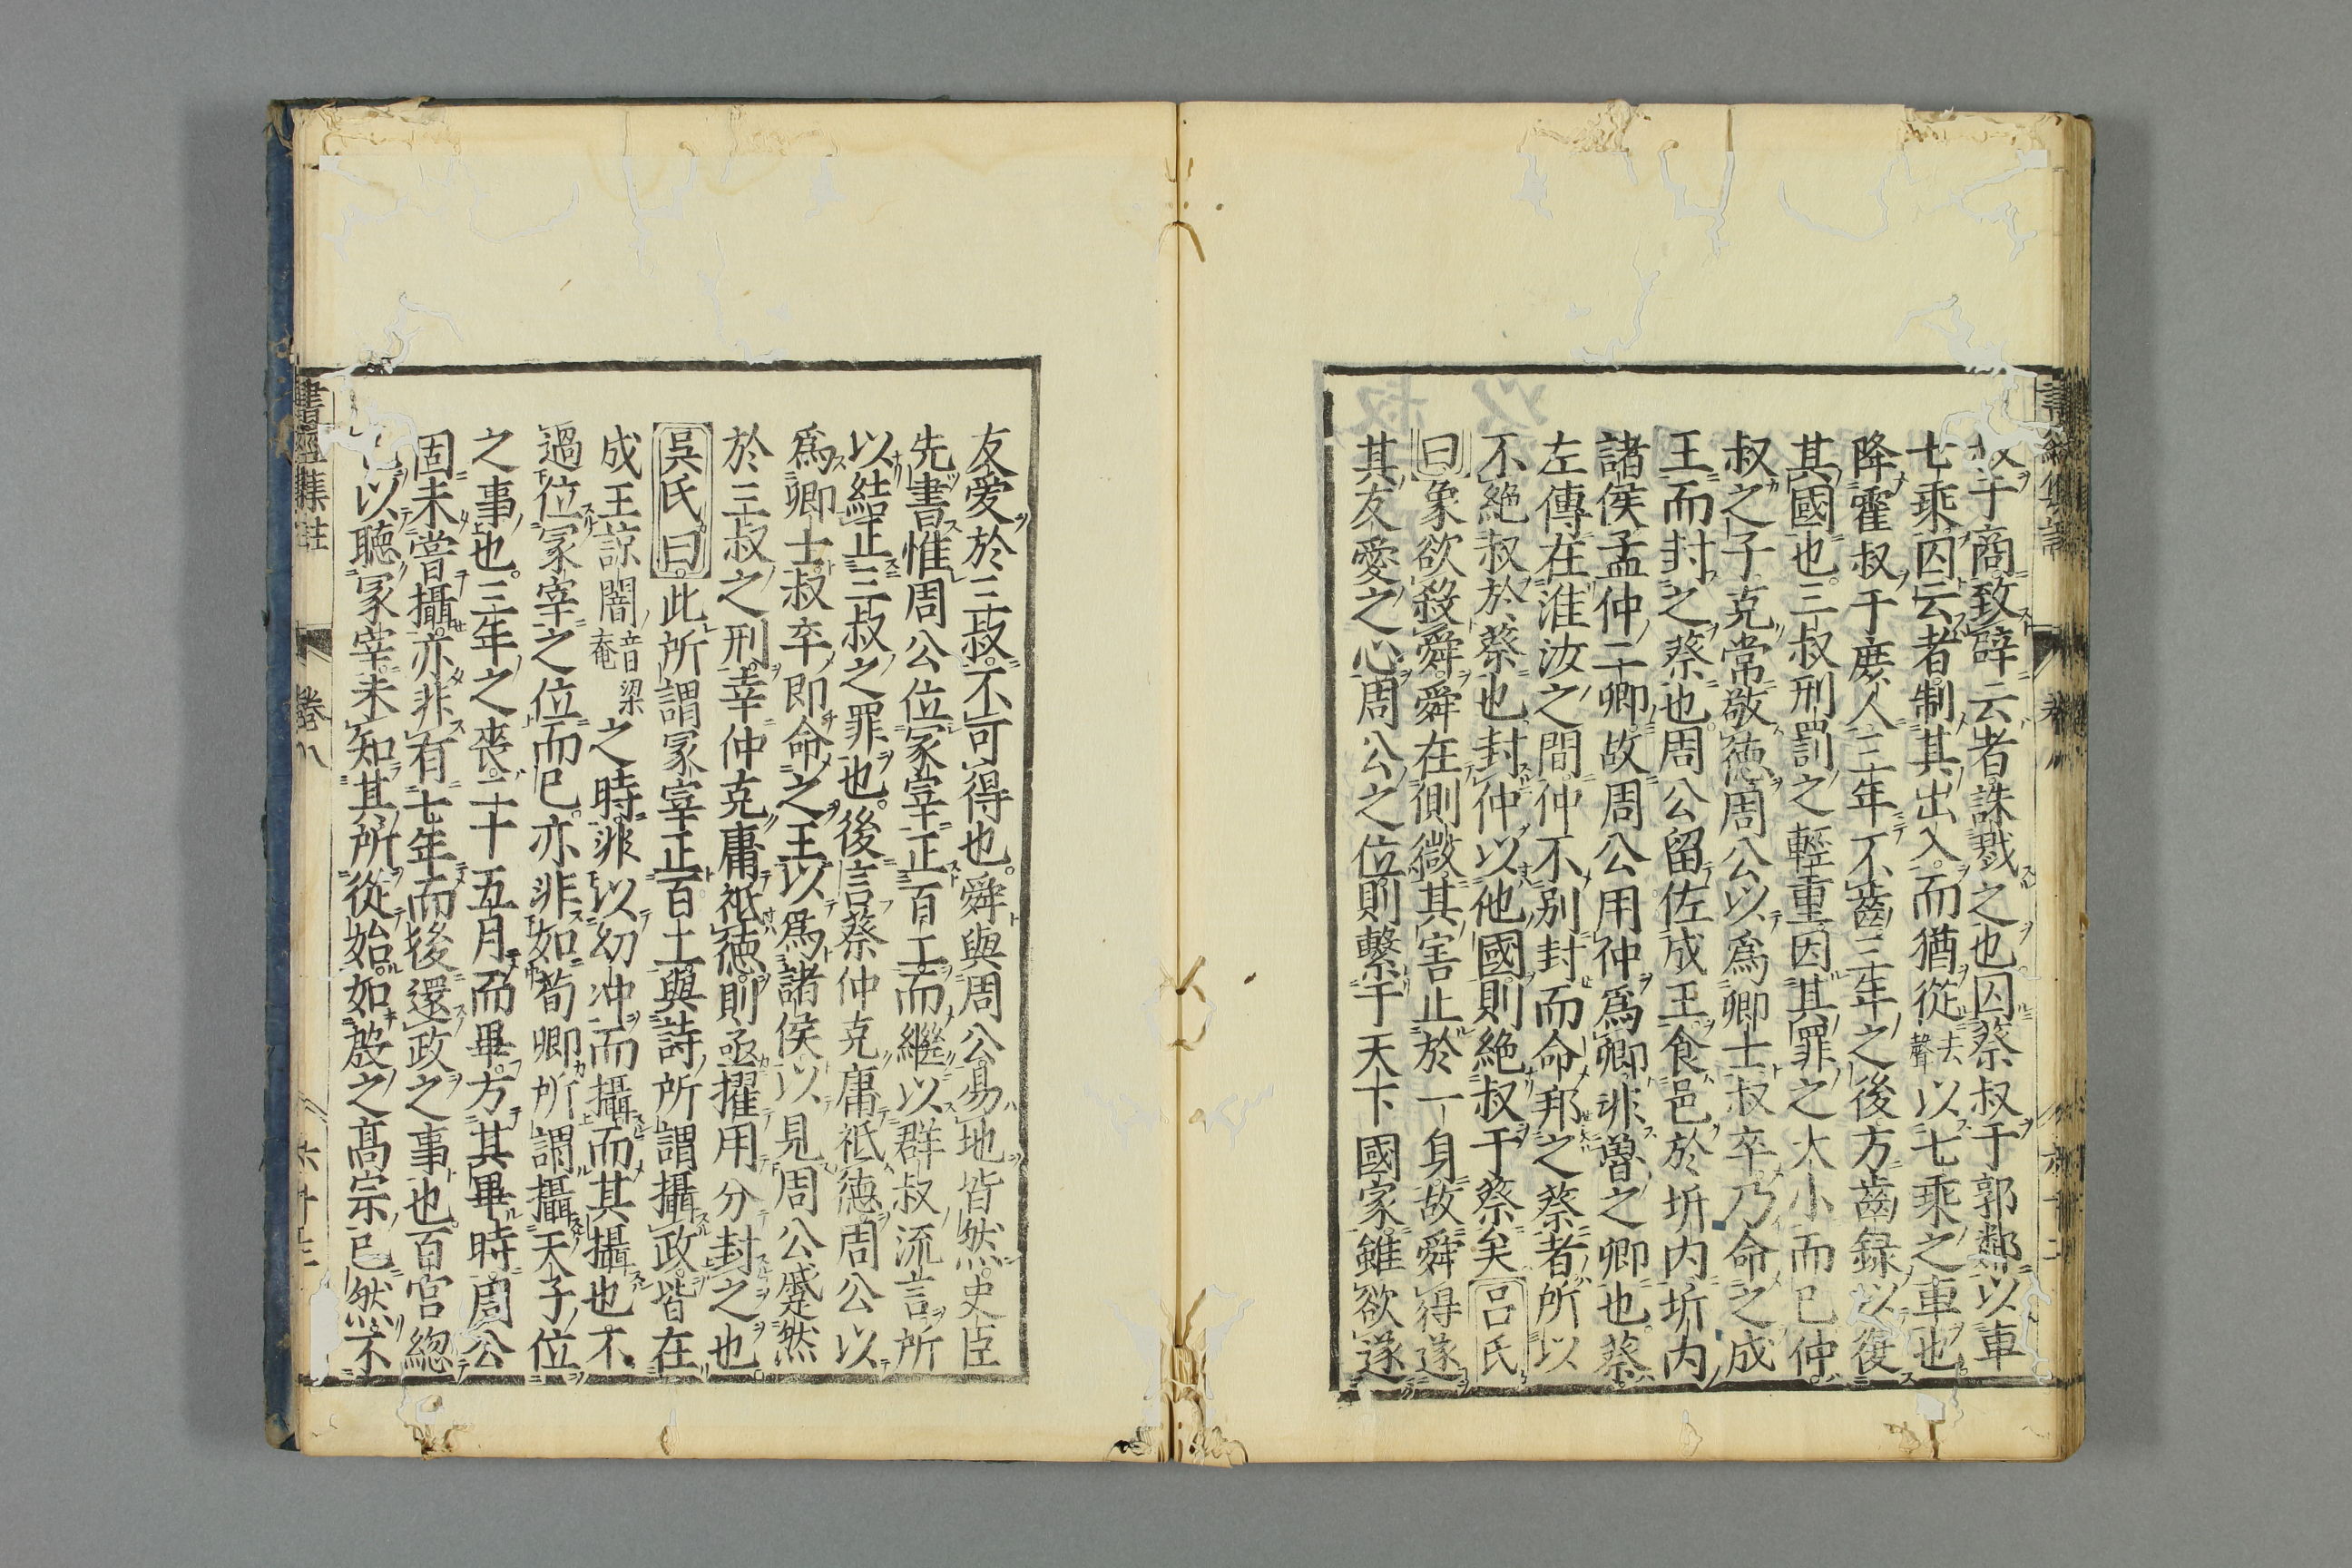 于商致辟云者誅戮之也囚蔡叔于郭鄰以車
七乘囚云者制其出入而猶從去聲以七乘之車也
降霍叔于庶人三年不齒三年之後方齒録以復
其國也三叔刑罰之輕重因其罪之大小而已仲
叔之子克常敬德周公以爲卿士叔卒乃命之成
王而封之蔡也周公留佐成王食邑於圻内圻内
諸侯孟仲二卿故周公用仲爲卿非魯之卿也蔡
左傳在淮汝之間仲不別封而命邦之蔡者所以
不絶叔於蔡也封仲以他國則絶叔于蔡矣呂氏
曰象欲殺舜舜在側微其害止於一身故舜得遂
其友愛之心周公之位則繫于天下國家雖欲遂
友愛於三叔不可得也舜與周公易地皆然史臣
先書惟周公位冢宰正百工而繼以群叔流言所
以結正三叔之罪也後言蔡仲克庸祗德周公以
爲卿士叔卒即命之王以爲諸侯以見周公蹙然
於三叔之刑幸仲克庸祗德則亟擢用分封之也
吳氏曰此所謂冢宰正百工與詩所謂攝政皆在
成王諒闇音梁庵之時非以幼冲而攝而其攝也不
過位冢宰之位而已亦非如荀卿所謂攝天子位
之事也三年之喪二十五月而畢方其畢時周公
固未嘗攝亦非有七年而後還政之事也百官緫
以聽冢宰未知其所從始如殷之高宗已然不
書經集註 卷八 六十三